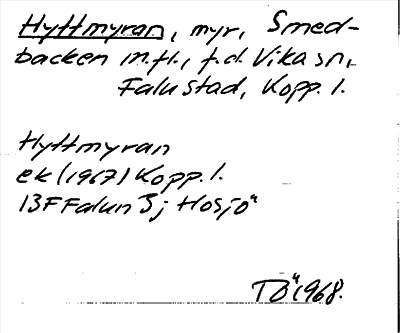 Hyttmyran, myr, Smed-
backen m.fl., f.d. Vika sn,
Falu stad, Kopp. l.
Hyttmyran
ek (1967) Kopp. l.
13F Falun 3j Hosjö
TÖ 1968.